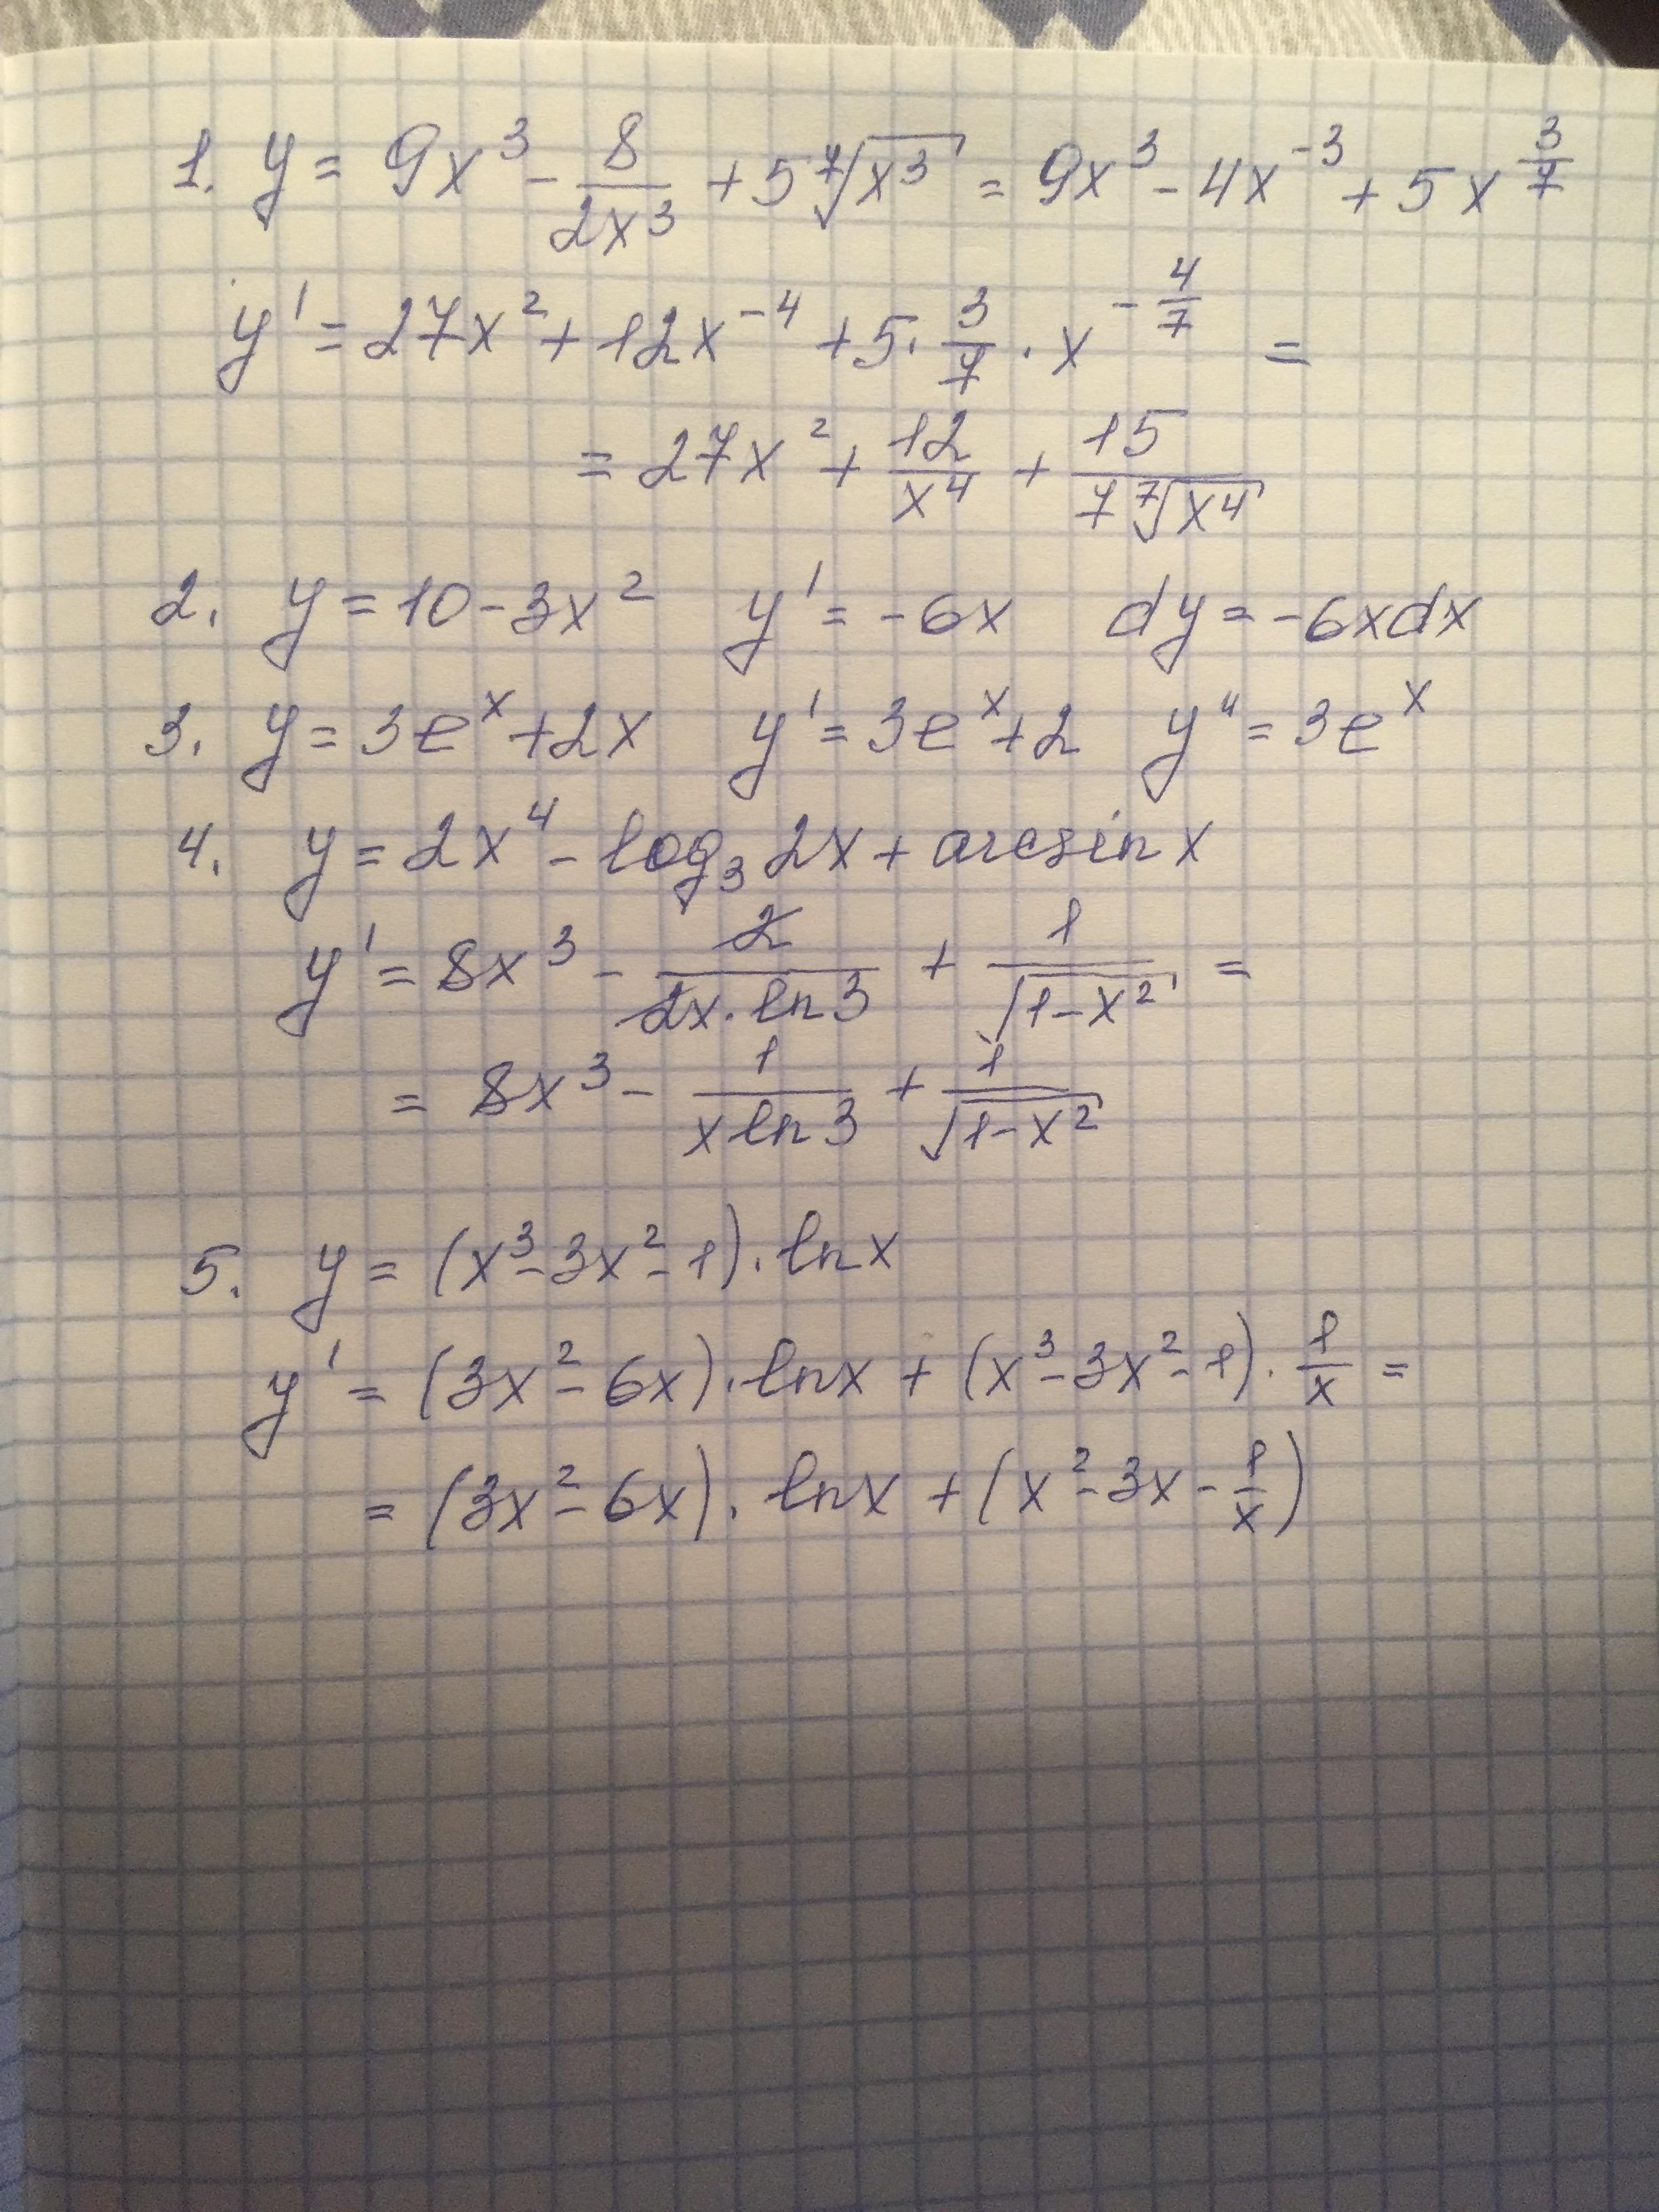 1. y = 9x³ - 8/(2x³) + 5 ⁷√(x³) = 9x³ - 4x⁻³ + 5x^(3/7)
y' = 27x² + 12x⁻⁴ + 5 · 3/7 · x^(-4/7) =
= 27x² + 12/x⁴ + 15/(7 ⁷√(x⁴))
2. y = 10 - 3x² y' = -6x dy = -6xdx
3. y = 3eˣ + 2x y' = 3eˣ + 2 y'' = 3eˣ
4. y = 2x⁴ - log₃ 2x + arcsin x
y' = 8x³ - 2/(2x · ln 3) + 1/√(1-x²) =
= 8x³ - 1/(x ln 3) + 1/√(1-x²)
5. y = (x³ - 3x² - 1) · ln x
y' = (3x² - 6x) · ln x + (x³ - 3x² - 1) · 1/x =
= (3x² - 6x) · ln x + (x² - 3x - 1/x)